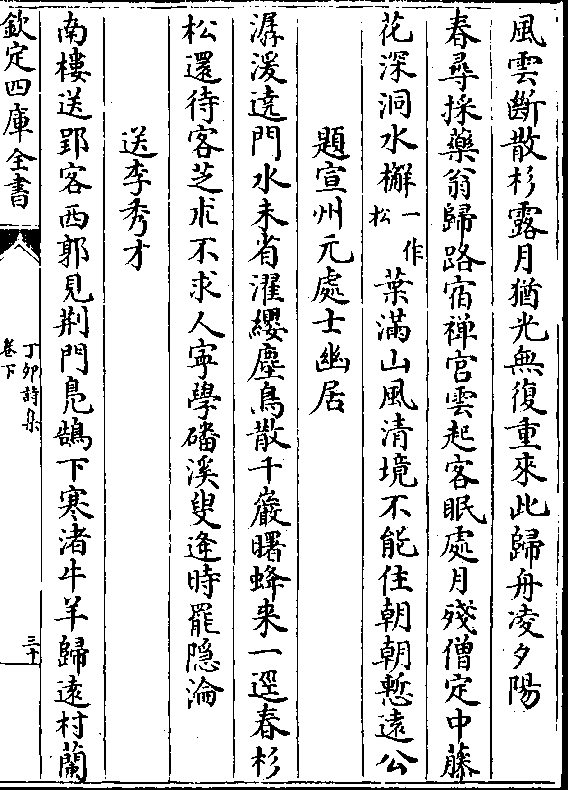 風雲斷散杉露月猶光無復重來此歸舟凌夕陽
春尋採藥翁歸路宿禅宫雲起客眠處月殘僧定中藤
花深洞水檞一作松葉滿山風清境不能住朝朝慙遠公
題宣州元處士幽居
潺湲遶門水未省濯纓塵鳥散千巖曙蜂来一逕春杉
松還待客芝朮不求人寧學磻溪叟逢時罷隠淪
送李秀才
南樓送郢客西郭見荆門鳬鵠下寒渚牛羊歸逺村蘭
欽定四庫全書
丁卯詩集
卷下
三十